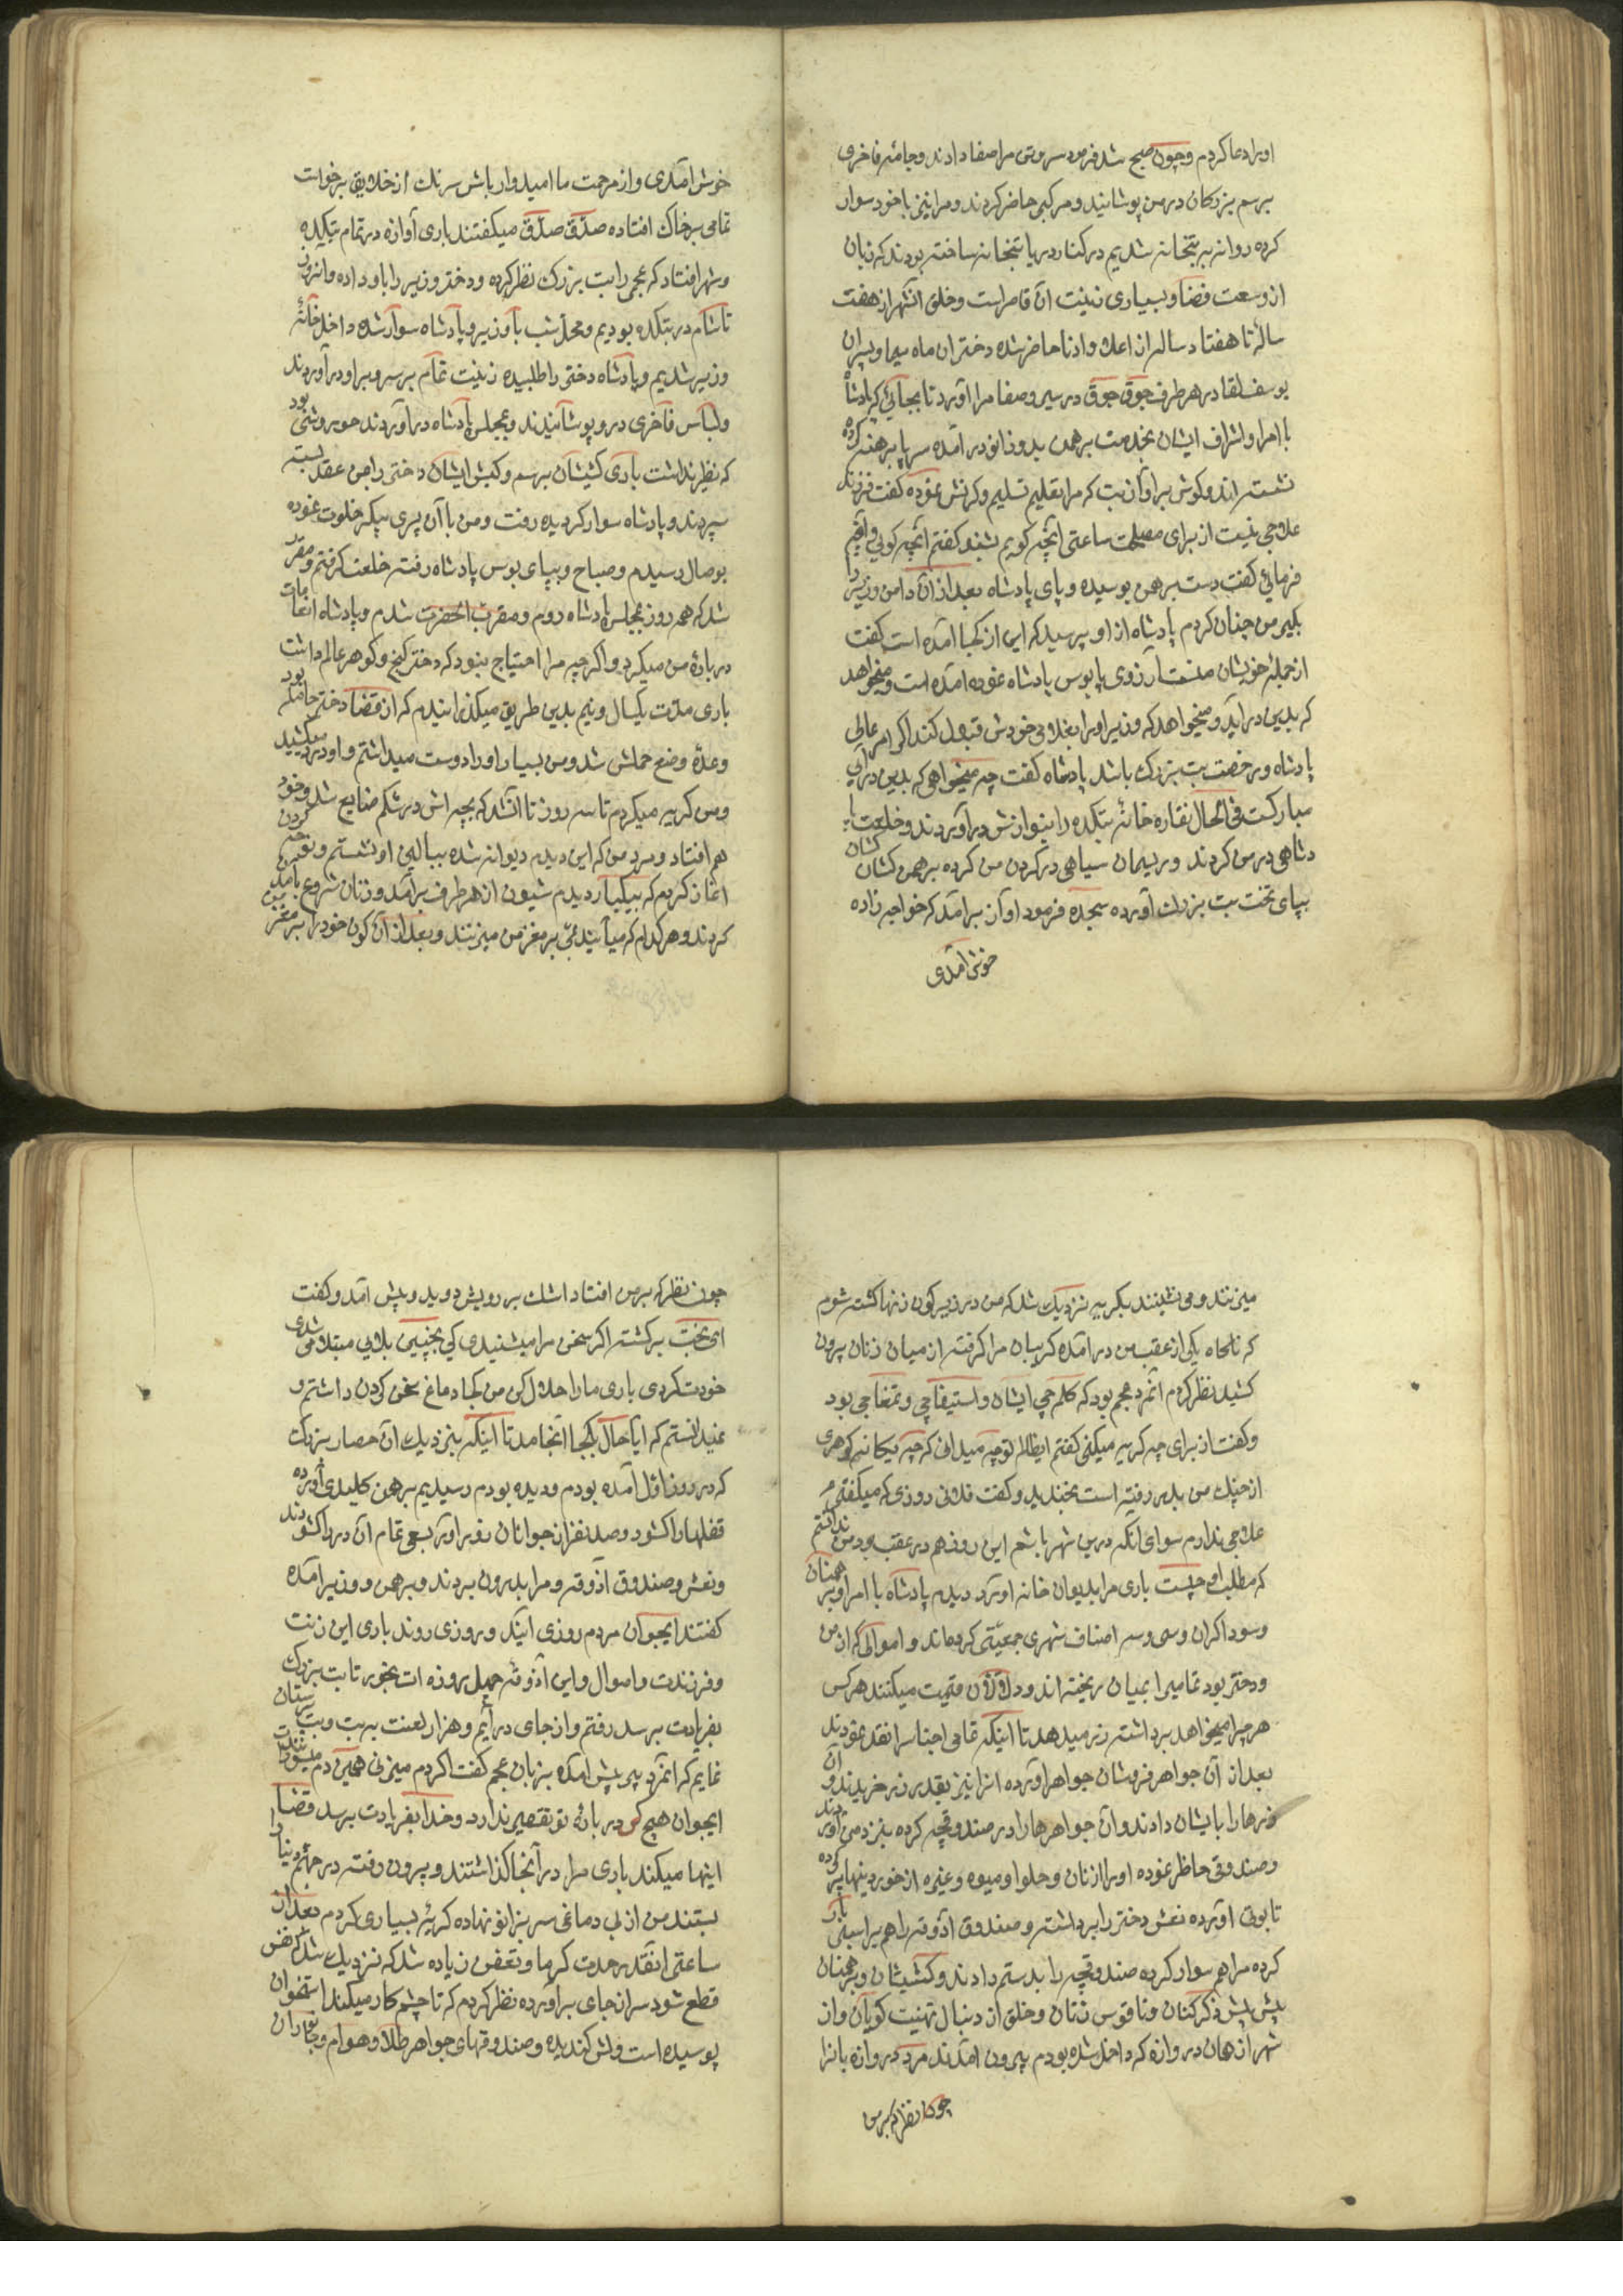 اورا دعا کردم وچون صبح شد فرمود سروتن مرا صفا دادند وجامهٔ فاخری
برسم بزرکان در من پوشانیدند ومرکبی حاضر کردند ومرا نیز با خود سوار
کرده روانه بتخانه شدیم در کنار دریا بتخانه ساخته بودند که زبان
از وسعت فضا وبسیاری زینت آن قاصر است وخلق آنشهر از هفت
ساله تا هفتاد ساله از اعلا وادنا حاضر شده دختران ماه سیما وپسران
یوسف لقا در هر طرف جوق جوق در سیر وصفا مرا آورد تا بجائی که پادشاه
با امرا واشراف ایشان بخدمت برهمن بدو زانو در آمده سر پا برهنه کرده
نشسته اند وکوش بر آواز بت که مرا تعلیم تسلیم وکرنش نموده کفت فرزند
علاجی نیست از برای مصلحت ساعتی آنچه کویم بشنو کفتم آنچه کوئی
فرمائی کفت دست برهمن بوسیده وپای پادشاه بعد از آن دامن وزیر را
بکیر من چنان کردم پادشاه از او پرسید که این از کجا آمده است کفت
از جمله خویشان منست آرزوی پابوس پادشاه نموده آمده است ومیخواهد
که بدین در آید ومیخواهد که وزیر اورا بغلامی خودش قبول کند اکر امر عالی
پادشاه ورخصت بت بزرک باشد پادشاه کفت چه میخواهی که بدین در آئی
مبارکست فی الحال نقاره خانهٔ بتکده را بنوازش در آوردند وخلعت
شاهی در من کردند وریسمان سیاهی در کردن من کرده برهمن کشان کشان
بپای تخت بت بزرک آورده سجده فرمود آواز بر آمد که خواجه زاده
خوش آمدی
خوش آمدی واز مرحمت ما امیدوار باش سرنک از خلایق برخواست
تمامی بر خاک افتاده صدق صدق میکفتند باری آوازه در تمام بتکده
وشهر افتاد که عجمی را بت بزرک نظر کرده ودختر وزیر را باو داده وآنروز
تا شام در بتکده بودیم ومحل شب با وزیر وپادشاه سوار شده داخل خانهٔ
وزیر شدیم وپادشاه دختر را طلبیده زینت تمام بر سر وبر او در آوردند
ولباس فاخری در وپوشانیدند وبمجلس پادشاه در آوردند حور وشی بود
که نظیر نداشت باری کشیشان برسم وکیش ایشان دختر را بمن عقد بسته
سپردند وپادشاه سوار کردیده رفت ومن با آن پری پیکر خلوت نموده
بوصال رسیدم وصباح وبپای بوس پادشاه رفته خلعت کرفتم ومقرر
شد که هر روز بمجلس پادشاه روم ومقرب الحضرت شدم وپادشاه انعامات
در بارهٔ من میکرد واکرچه مرا احتیاج نبود که دختر کنج وکوهر عالم داشت
باری مدت یکسال ونیم بدین طریق میکذرانیدم که از قضا دختر حامله بود
وعدهٔ وضع حملش شد ومن بسیار اورا دوست میداشتم واو درد میکشید
ومن کریه میکردم تا سه روز تا آنشد که بچه اش در شکم ضایع شد وخود
هم افتاد ومرد من که این دیدم دیوانه شده ببالین او نشستم ونوحه کردن
آغاز کردم که بیکبار دیدم شیون از هر طرف بر آمد وزنان شروع بآمدن
کردند وهر کدام که میآیند مشتی بر مغز من میزنند وبعد از آن کون خود را بر مغز
میزنند ومی نشینند بکریه نزدیک شد که من در زیر کون زنها کشته شوم
که ناکاه یکی از عقب من در آمده کریبان مرا کرفته از میان زنان بیرون
کشید نظر کردم آنمرد عجم بود که کلمه چی ایشان واستیفاچی وتمغاچی بود
وکفت از برای چه کریه میکنی کفتم ایظالم تو چه میدانی که چه یکانه کوهری
از چنک من بدر رفته است بخندید وکفت فلانی روزی که میکفتی
علاجی ندارم سوای آنکه درین شهر باشم این روز هم در عقب بود من ندانستم
که مطلب او چیست باری مرا بدیوان خانه آورد دیدم پادشاه با امرا وبرهمنان
وسوداکران وسی وسه اصناف شهری جمعیتی کرده اند واموالی که از من
ودختر بود تمامیرا بمیان ریخته اند ودلالان قیمت میکنند هر کس
هر چرا میخواهد برداشته زر میدهد تا اینکه تمامی اجناس را نقد نمودند
بعد از آن جواهر فروشان جواهر آورده آنرا نیز بقدر زر خریدند وآن
زرها را بایشان دادند وآن جواهرها را در صندوقچه کرده بنزد من آوردند
وصندوقی حاظر نموده اورا از نان وحلوا ومیوه وغیره از خوردنیها پر کرده
تابوتی آورده نعش دختر را برداشته وصندوق آذوقه را هم بر اسبی بار
کرده مرا هم سوار کرده صندوقچه را بدستم دادند وکشیشان وبرهمنان
پیش پیش ذکر کنان وناقوس زنان وخلق از دنبال تهنیت کویان واز
شهر از همان دروازه که داخل شده بودم بیرون آمدند مرد دروازه بانرا
چون نظر که بر من
چون نظر که بر من افتاد اشک بر رویش دوید وپیش آمد وکفت
ای بخت برکشته اکر سخن مرا میشنیدی کی بچنین بلائی مبتلا می شدی
خودت کردی باری ما را حلال کن من کجا دماغ سخن کردن داشتم و
نمیدانستم که آیا حال بکجا انجامد تا اینکه بنزدیک آن حصار بزرک
که در روز اول آمده بودم ودیده بودم رسیدیم برهمن کلیدی آورده
قفلها را کشود وصد نفر از جوانان زور آور بسعی تمام آن در را کشودند
ونعش وصندوق آذوقه ومرا بدرون بردند وبرهمن ووزیر آمده
کفتند ایجوان مردم روزی آیند وروزی روند باری این زنت
وفرزندت واموال واین آذوقهٔ چهل روزه ات بخور تا بت بزرک
بفریادت برسد رفتم واز جای در آیم وهزار لعنت به بت وبت پرستان
نمایم که آنمرد پیر پیش آمده بزبان عجم کفت اکر دم میزنی همین دم
ایجوان هیچ کس در بارهٔ تو تقصیر ندارد وخدا بفریادت برسد قضا
اینها میکند باری مرا در آنجا کذاشتند وبیرون رفته در جهنم دنیا را
بستند من از بی دماغی سر بزانو نهاده کریهٔ بسیاری کردم بعد از
ساعتی آنقدر حدت کرما وتعفن زیاده شد که نزدیک شد که نفس
قطع شود سر از جای بر آورده نظر کردم که تا چشم کار میکند استخوان
پوسیده است ولش کندیده وصندوقهای جواهر طلا وهوام وجانوران